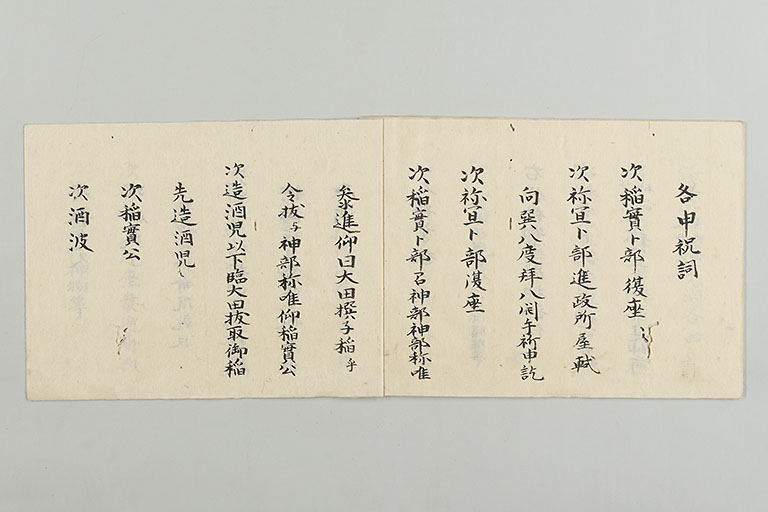 各申祝詞
次稲實卜部復座
次祢冝卜部進政所屋軾
向巽八度拜八開手祈申訖
次祢冝卜部復座
次稲實卜部召神部神部称唯
参進仰曰大田撰子稲乎
令拔与神部称唯仰稲實公
次造酒児以下臨大田拔取御稲
先造酒児
次稲實公
次酒波